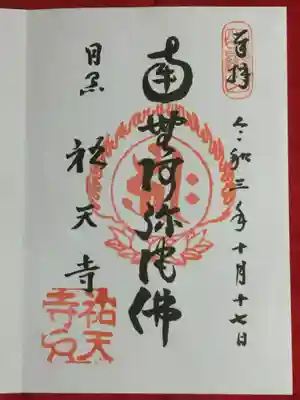 令和三年十月十七日
南無阿弥陀佛
目黒
祐天寺
祐天
寺印